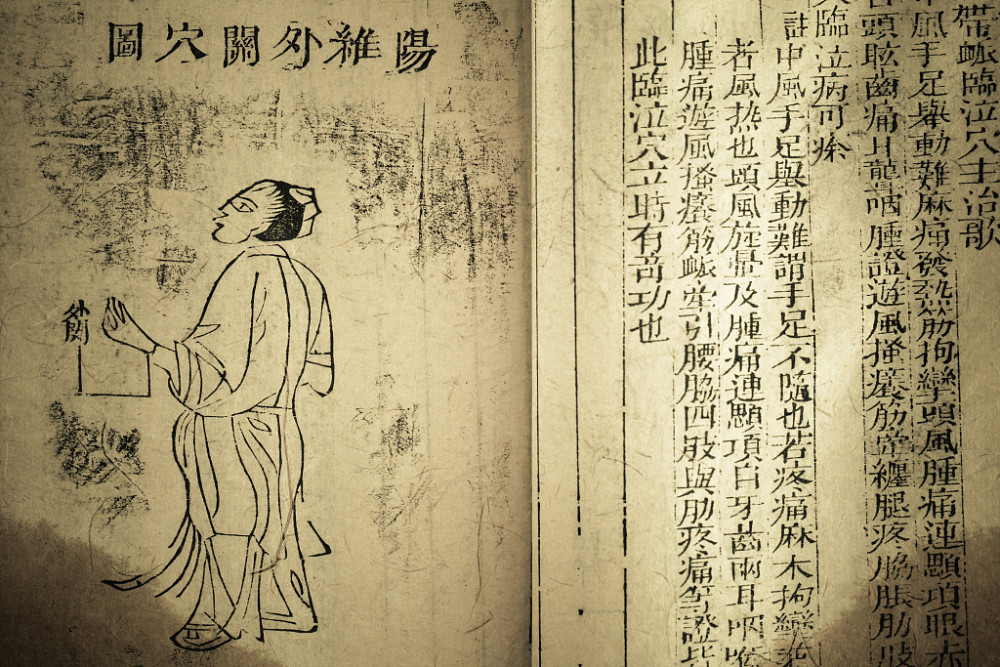 帶衇臨泣穴主治歌
中風手足舉動難麻痛發熱筋拘攣頭風腫痛連顋項眼赤
頭眩齒痛耳聾咽腫證遊風搔癢筋牽纏腿疼脇脹肋肢
臨泣病可痊
註中風手足舉動難謂手足不隨也若疼痛麻木拘攣
者風熱也頭風旋暈及腫痛連顋項目牙齒兩耳咽喉
腫痛遊風搔癢筋衇牽引腰脇四肢與肋疼痛等證
此臨泣穴立時有奇功也
陽維外關穴圖
外關